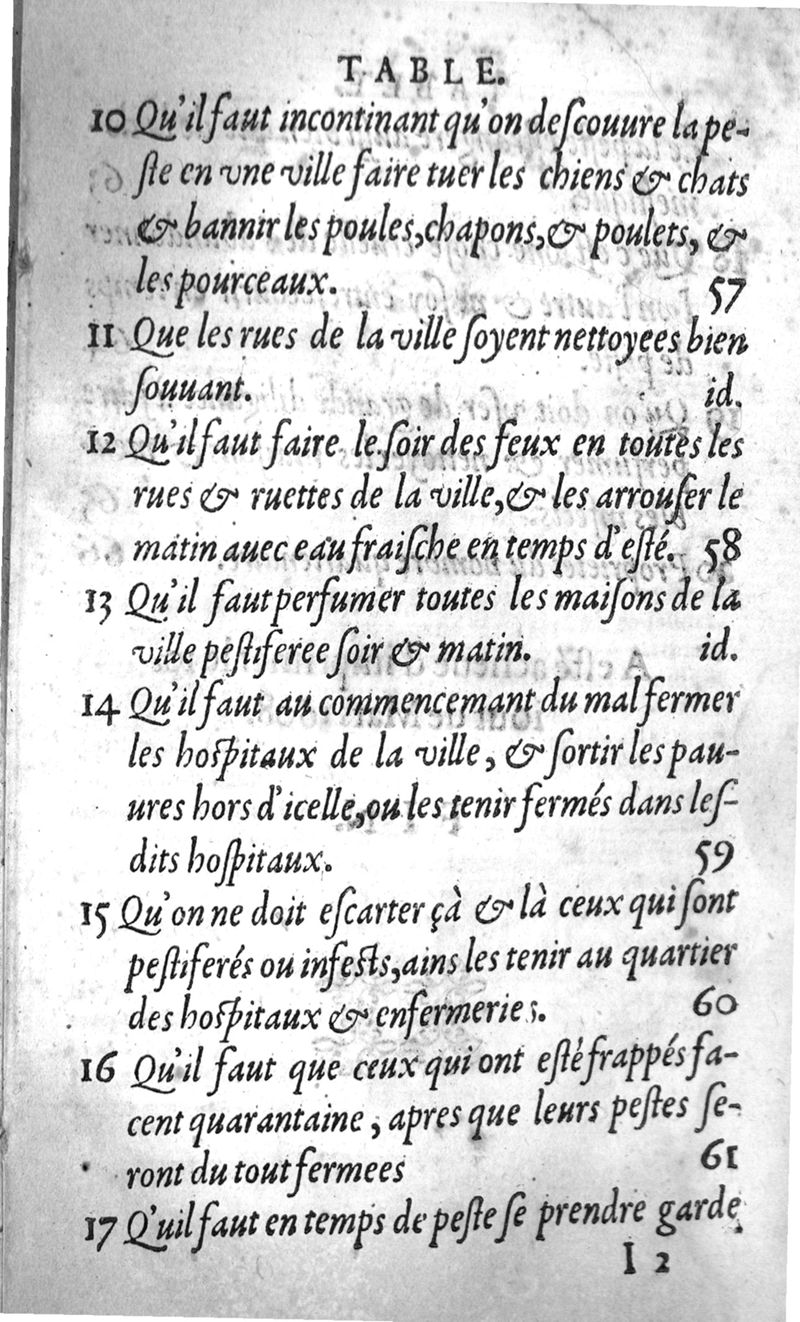 TABLE.
10 Qu'il faut incontinant qu'on deſcouure la pe-
ſte en vne ville faire tuer les chiens & chats
& bannir les poules, chapons, & poulets, &
les pourceaux. 57
11 Que les rues de la ville ſoyent nettoyees bien
ſouuant. id.
12 Qu'il faut faire le ſoir des feux en toutes les
rues & ruettes de la ville, & les arrouſer le
matin auec eau fraiſche en temps d'eſté. 58
13 Qu'il faut perfumer toutes les maiſons de la
ville peſtiferee ſoir & matin. id.
14 Qu'il faut au commencemant du mal fermer
les hoſpitaux de la ville, & ſortir les pau-
ures hors d'icelle, ou les tenir fermés dans leſ-
dits hoſpitaux. 59
15 Qu'on ne doit eſcarter çà & là ceux qui ſont
peſtiferés ou infects, ains les tenir au quartier
des hoſpitaux & enfermeries. 60
16 Qu'il faut que ceux qui ont eſté frappés fa-
cent quarantaine, apres que leurs peſtes ſe-
ront du tout fermees 61
17 Q'uil faut en temps de peſte ſe prendre garde
I 2